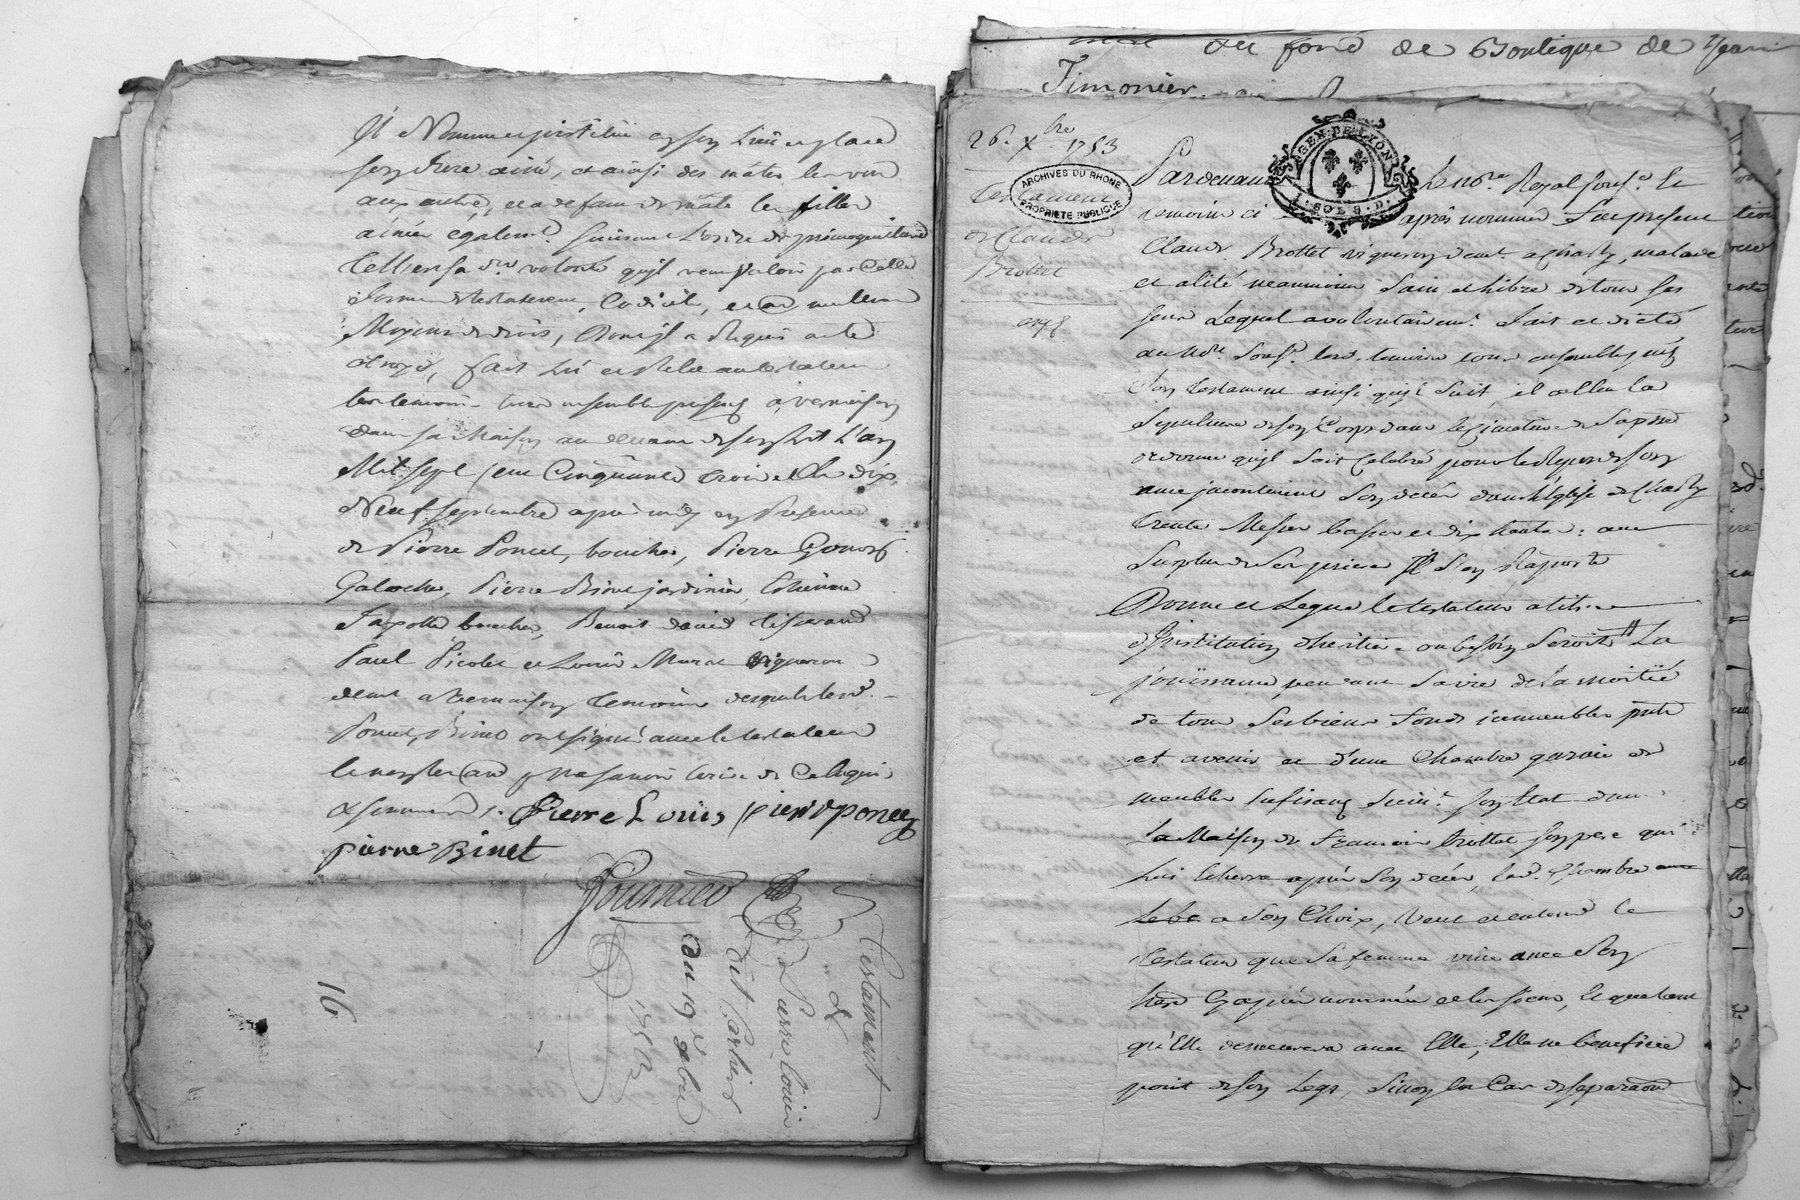 Il Nomme et institue en son lieu et place
son frere ainé, et ainsi des mâles les uns
aux autres, et a defaut de mâle les filles
ainées egalem.t suivant l'ordre de primogeniture
Telle est sa d.re volonté qu'il veut valoir par telle
forme de testament, Codicil, et au meilleur
Moyens de droit, Dont il a Requis acte
Octroyé, fait lû et Relu au testateur
les temoins tous ensemble presens a vernaison
dans sa Maison au devant de son lit L'an
Mil sept cent Cinquante trois et le dix
Neuf septembre apres midy en Presence
de Pierre Poncet, boucher, Pierre
Galoche, Pierre Binet jardinier, Ethienne
Jayolle boucher, Benoit david tisserand
Paul Picolet et Louis Murat vigneron
dem.t a Vernaison temoins desquels lesd.
Poncet, Binet ont signé avec le testateur
les autres pour ne savoir ecrire de Ce Enquis
& sommés /. Pierre Louis pierre poncet
pierre Binet
Fournier
Testament
de
Pierre louis
dit Carlier
du 19e 7bre
1753
16
du fond de Boutique de Jean
Timonier
26. Xbre 1753
Testament
de Claude
Brottet
ARCHIVES DU RHONE
PROPRIETE PUBLIQUE
GEN. DE LYON
SOLS D.
Pardevant Le no.re Royal sous.é Et
temoins ci après nommés Fut present
Claude Brottet vigneron dem.t a Charly, malade
et alité neanmoins sain et libre de tous ses
sens Lequel a volontairem.t Fait et dicté
au No.re sous.é les d. temoins tous ensemble
son testament ainsi qu'il suit, il ellit la
sepulture de son Corps dans le Cimetiere de sa p.sse
ordonne qu'il soit Celebré pour le Repos de son
ame incontinent son decès dans l'Eglise de Charly
trente Messes basses et dix hautes: au
surplus de ses prieres Il s'en Raporte
Donne et Legue le testateur a titre
d'Institution d'heritier ou besoin seroit La
jouissance pendant sa vie de la moitié
de tous ses biens fonds immeubles p.nts
et avenir et d'une Chambre garnie de
meubles sufisans suiv.t son Etat dans
La Maison de Francois brottet son pere qui
lui Echerra après son decès, lad. Chambre
a son Choix, Veut et entend le
testateur que sa femme vive avec son
her.e Cy après nommée et les siens, et que tant
qu'Elle demeurera avec Elle, Elle ne beneficie
point de son Legs, sinon En Cas de separation